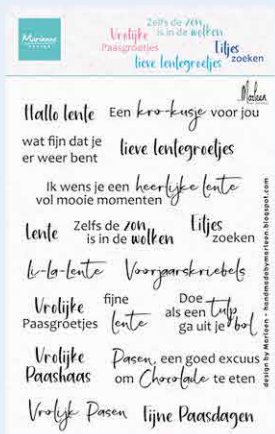 Marianne
DESIGN
Vrolijke
Paasgroetjes
Zelfs de zon
is in de wolken
Eitjes
zoeken
lieve lentegroetjes
Marleen
Hallo lente
Een kro-kusje voor jou
wat fijn dat je
er weer bent
lieve lentegroetjes
Ik wens je een heerlijke lente
vol mooie momenten
lente
Zelfs de zon
is in de wolken
Eitjes
zoeken
Li-la-lente
Voorjaarskriebels
Vrolijke
Paasgroetjes
fijne
lente
Doe
als een tulp
ga uit je bol
Vrolijke
Paashaas
Pasen, een goed excuus
om Chocolade te eten
Vrolijk Pasen
Fijne Paasdagen
design by Marleen • handmadebymarleen.blogspot.com